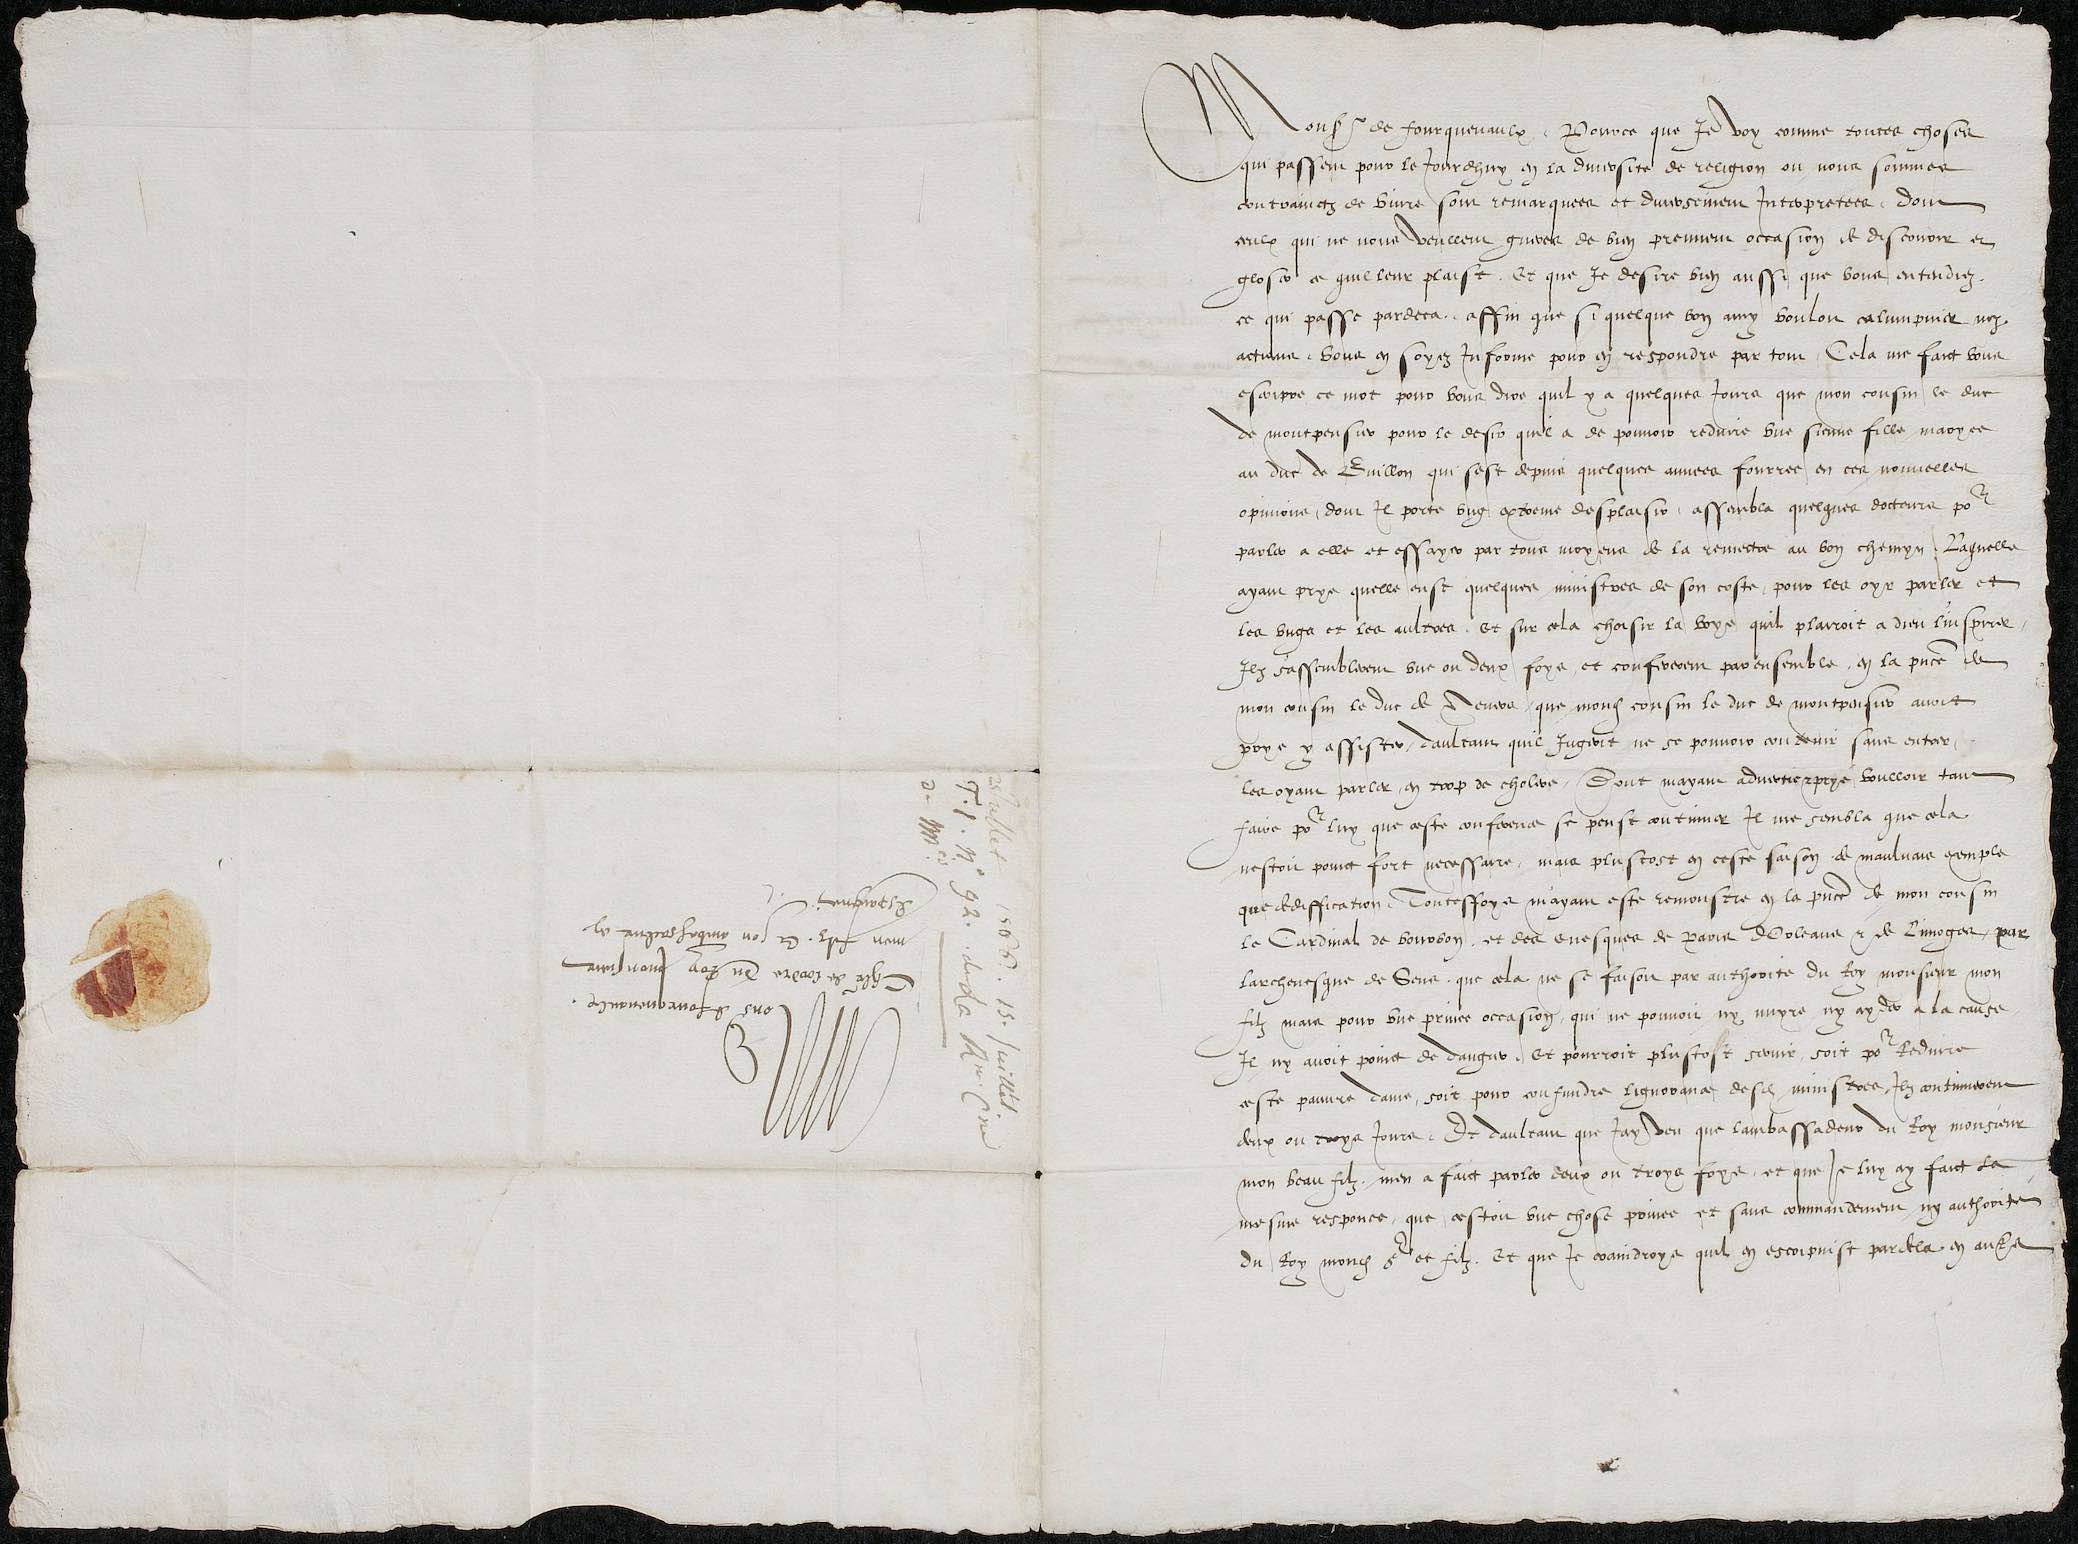 Monsr de fourquevaulx, Pource que Je voy comme toutes choses
qui passent pour le Jourdhuy en la diversite de religion ou nous sommes
contrainctz de vivre sont remarquees et diversement Interpretees, dont
ceulx qui ne nous veullent gueres de bien prennent occasion de discourir et
gloser ce quil leur plaist. Et que Je desire bien aussi que vous entendiez
ce qui passe pardeca, affin que si quelque bon amy vouloit calumpnier noz
actions, vous en soyez Informe pour en respondre par tout, Cela me faict vous
escripre ce mot pour vous dire quil y a quelques Jours que mon cousin le duc
de montpensier pour le desir quil a de pouvoir reduire une sienne fille maryee
au duc de Buillon qui sest depuis quelques annees fourree en ces nouvelles
opinions, dont Il porte ung extreme desplaisir, assembla quelques docteurs por
parler a elle et essayer par tous moyens de la remectre au bon chemyn, Laquelle
ayant prye quelle eust quelques ministres de son coste, pour les oyr parler et
les ungs et les aultres, Et sur cela choisir la voye quil plairoit a dieu linspirer,
Ilz sassemblerent une ou deux foys, et confererent par ensemble, en la pnce de
mon cousin le duc de Nevers, que mond cousin le duc de montpensier avoit
prye y assister, daultant quil Jugeoit ne se pouvoir contenir sans entrer,
les oyant parler en trop de cholere, Dont mayant advertie & prye voulloir tant
faire por luy que ceste conference se peust continuer Il me sembla que cela
nestoit point fort necessaire, mais plustost en ceste saison de maulvais exemple
que dediffication, Touteffoys mayant este remonstre en la pnce de mon cousin
le Cardinal de bourbon, et des evesques de paris dOrleans & de Limoges, par
larchevesque de Sens, que cela ne se faisoit par authorite du Roy monsieur mon
filz mais pour une privee occasion, qui ne pouvoit ny nuyre ny ayder a la cause
Il ny avoit point de danger, Et pourroit plustost servir, soit por Reduire
ceste pauvre dame, soit pour confundre lignorance desd ministres, Ilz continuerent
deux ou troys Jours, Et daultant que Jay veu que lambassadeur du Roy monsieur
mon beau filz, men a faict parler deux ou troys foys, et que Je luy ay faict la
mesme responce, que cestoit une chose privee et sans commandement ny authorite
du Roy mond sr et filz, Et que Je craindroys quil en escripvist pardela en aultre
Monsr de fourquevaulx,
chlr de lordre du Roy monsieur
mon filz, Et son ambassadeur en
Espaigne
25 Juillet 1566. 15. Juillet
T. 1. N° 92. de La Reine
de Mis